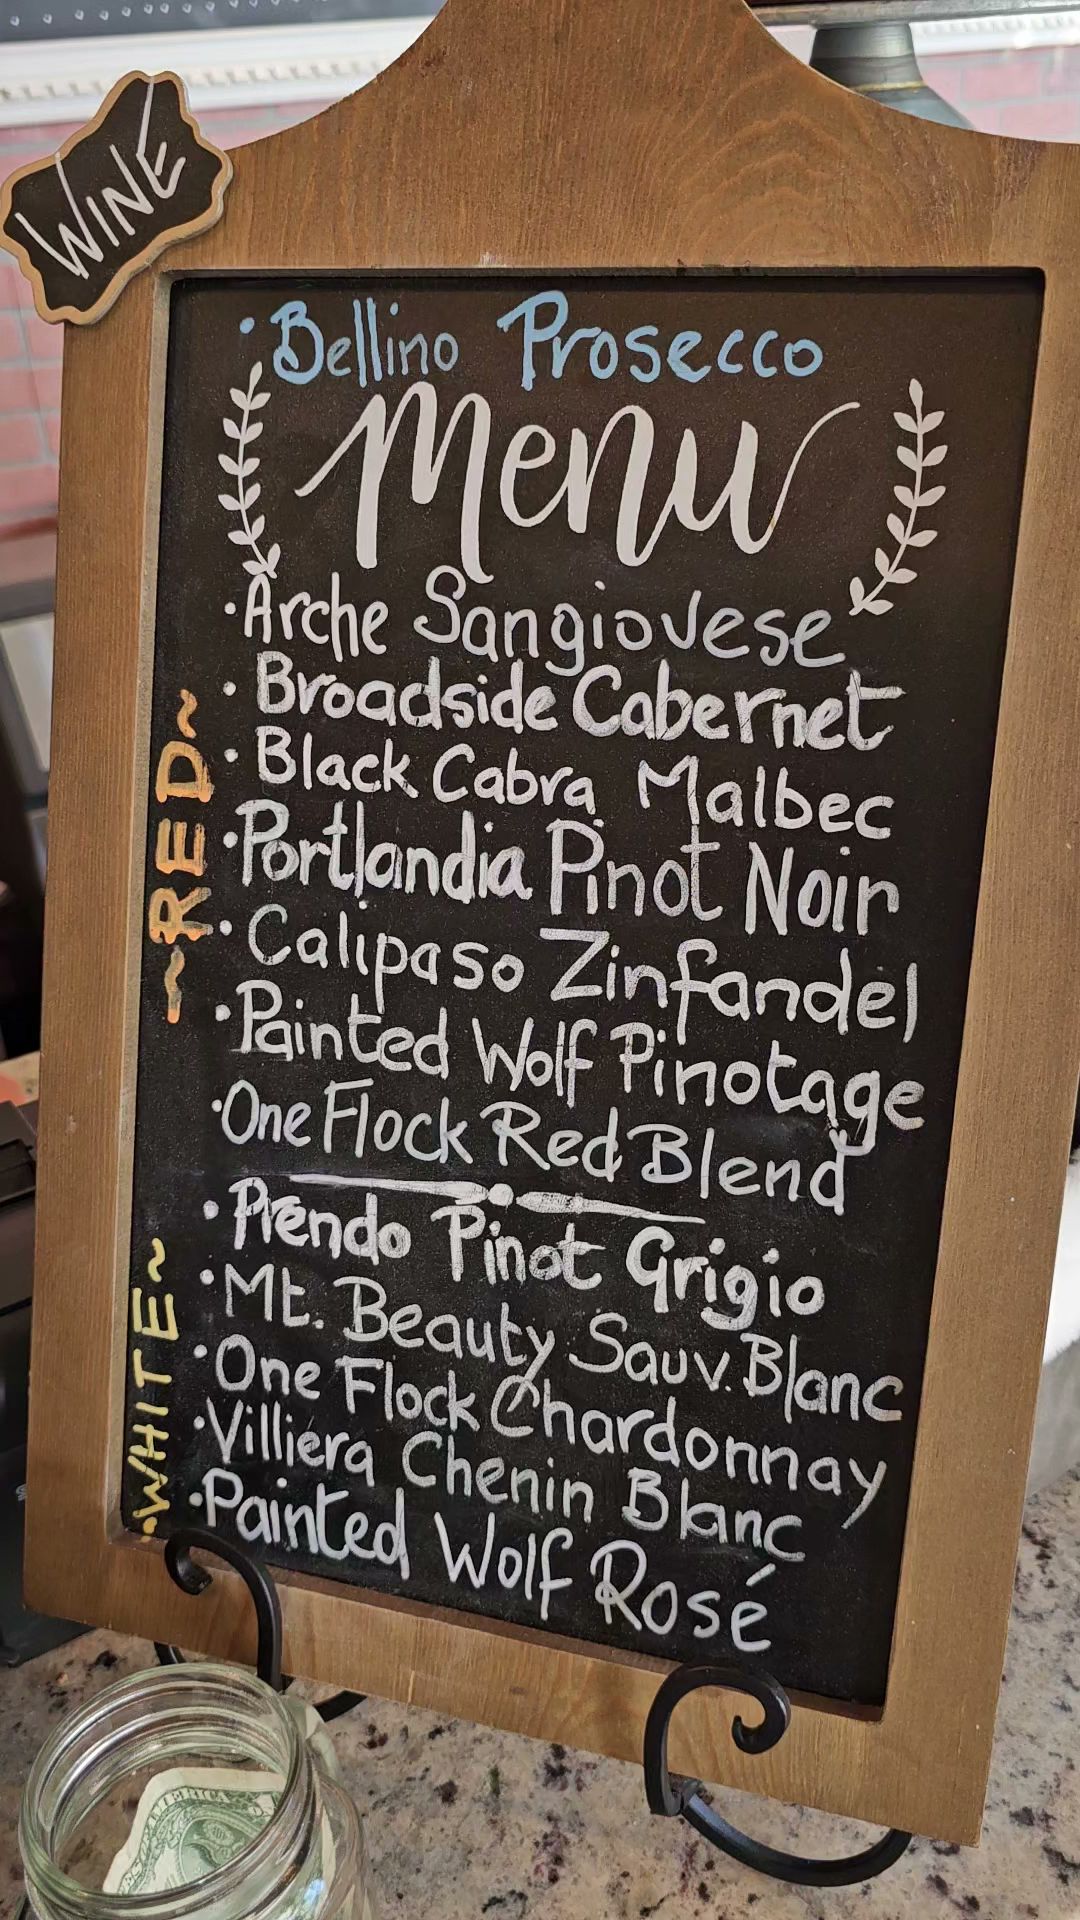 WINE
• Bellino Prosecco
Menu
• Arche Sangiovese
• Broadside Cabernet
• Black Cabra Malbec
• Portlandia Pinot Noir
• Calipaso Zinfandel
• Painted Wolf Pinotage
• One Flock Red Blend
~RED~
• Prendo Pinot Grigio
• Mt. Beauty Sauv. Blanc
• One Flock Chardonnay
• Villiera Chenin Blanc
• Painted Wolf Rosé
•WHITE~